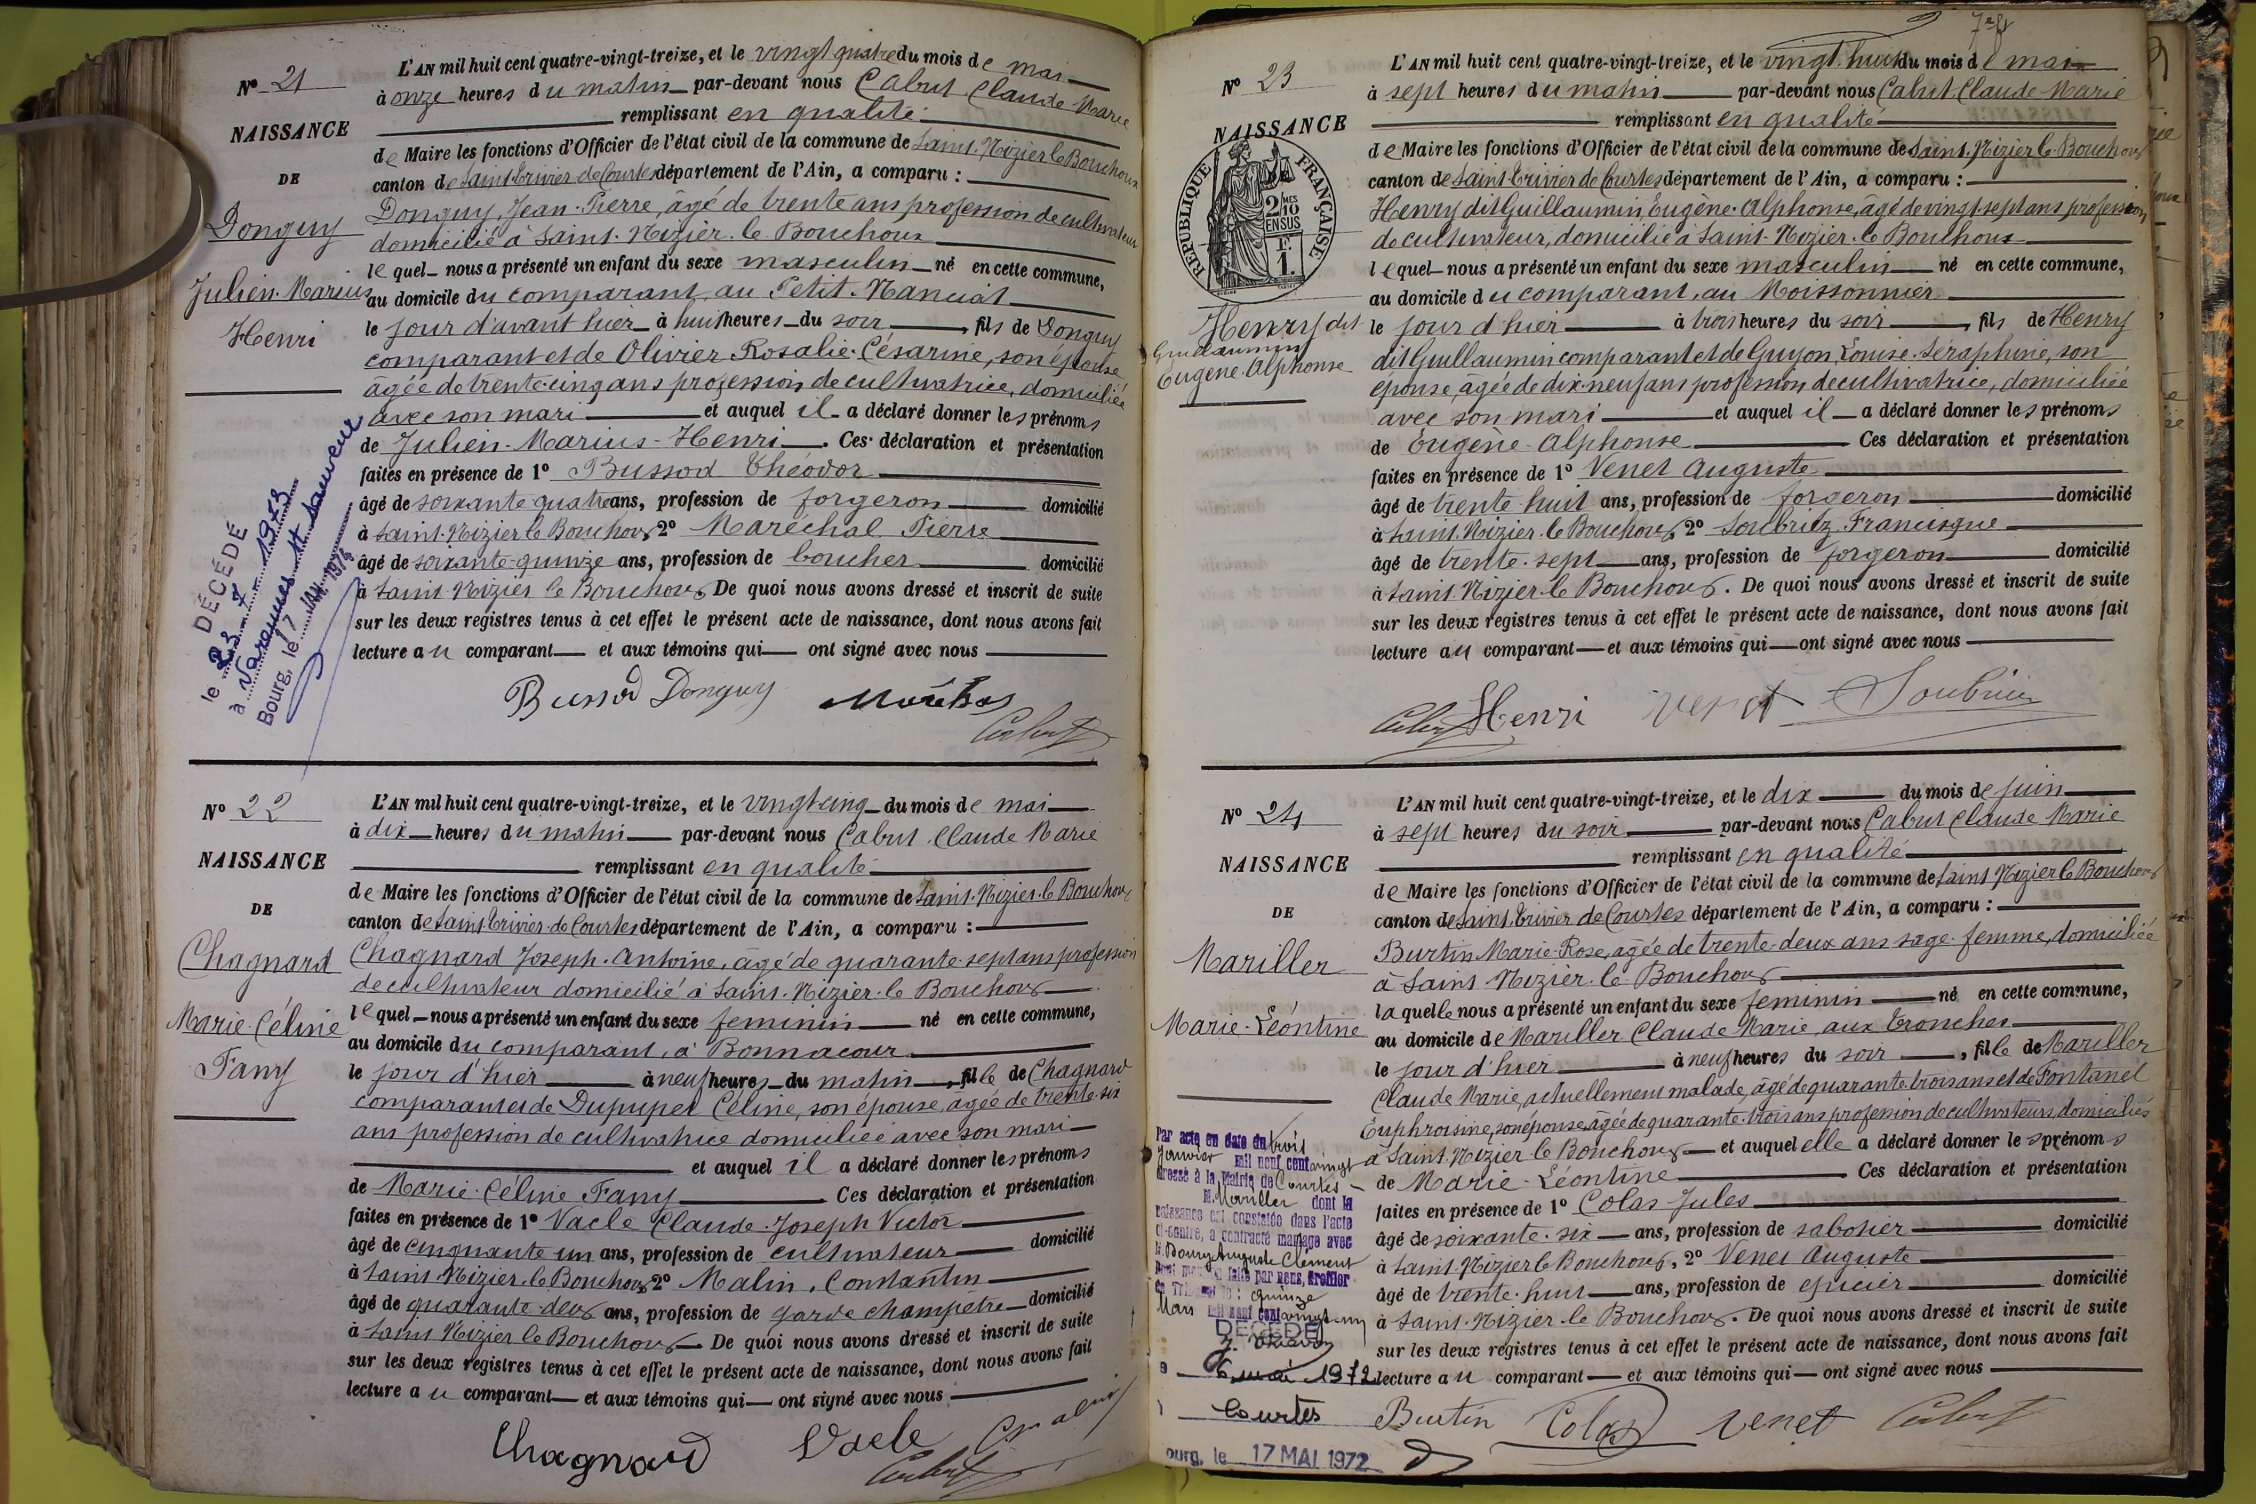 N° 21
NAISSANCE
DE
Donguy
Julien-Marius
Henri
L'AN mil huit cent quatre-vingt-treize, et le vingt quatre du mois de mai
à onze heures du matin par-devant nous Cabut Claude Marie
remplissant en qualité
de Maire les fonctions d'Officier de l'état civil de la commune de Saint-Nizier le Bouchoux
canton de Saint Trivier de Courtes département de l'Ain, a comparu :
Donguy, Jean-Pierre, âgé de trente ans profession de cultivateur
domicilié à Saint-Nizier-le-Bouchoux
lequel nous a présenté un enfant du sexe masculin né en cette commune,
au domicile du comparant, au Petit-Manciat
le jour d'avant hier à huit heures du soir, fils de Donguy
comparant et de Olivier Rosalie-Césarine, son épouse
âgée de trente-cinq ans profession de cultivatrice, domiciliée
avec son mari et auquel il a déclaré donner les prénoms
de Julien-Marius-Henri. Ces déclaration et présentation
faites en présence de 1° Bussod Théodor
âgé de soixante quatre ans, profession de forgeron domicilié
à Saint-Nizier le Bouchoux 2° Maréchal Pierre
âgé de soixante-quinze ans, profession de boucher domicilié
à Saint Nizier le Bouchoux De quoi nous avons dressé et inscrit de suite
sur les deux registres tenus à cet effet le présent acte de naissance, dont nous avons fait
lecture au comparant et aux témoins qui ont signé avec nous
Bussod Donguy
Cabut
DÉCÉDÉ
le 23.7.1973
à Varennes St Sauveur
Bourg, le
N° 22
NAISSANCE
DE
Chagnard
Marie-Céline
Fany
L'AN mil huit cent quatre-vingt-treize, et le vingt-cinq du mois de mai
à dix heures du matin par-devant nous Cabut Claude Marie
remplissant en qualité
de Maire les fonctions d'Officier de l'état civil de la commune de Saint-Nizier-le Bouchoux
canton de Saint-Trivier-de-Courtes département de l'Ain, a comparu :
Chagnard Joseph-Antoine, âgé de quarante-sept ans profession
de cultivateur domicilié à Saint-Nizier-le Bouchoux
lequel nous a présenté un enfant du sexe feminin né en cette commune,
au domicile du comparant, à Bonnacour
le jour d'hier à neuf heures du matin, fille de Chagnard
comparant et de Dupupet Céline, son épouse, agée de trente-six
ans profession de cultivatrice domiciliée avec son mari
et auquel il a déclaré donner les prénoms
de Marie-Céline Fany Ces déclaration et présentation
faites en présence de 1° Vacle Claude-Joseph Victor
âgé de cinquante un ans, profession de cultivateur domicilié
à Saint-Nizier-le Bouchoux 2° Malin, Constantin
âgé de quarante-deux ans, profession de garde champêtre domicilié
à Saint Nizier le Bouchoux De quoi nous avons dressé et inscrit de suite
sur les deux registres tenus à cet effet le présent acte de naissance, dont nous avons fait
lecture au comparant et aux témoins qui ont signé avec nous
Chagnard Vacle
Cabut
N° 23
NAISSANCE
RÉPUBLIQUE FRANÇAISE
2 MES 10
EN SUS
Henry dit
Guillaumin
Eugène-Alphonse
L'AN mil huit cent quatre-vingt-treize, et le vingt-huit du mois de mai
à sept heures du matin par-devant nous Cabut Claude Marie
remplissant en qualité
de Maire les fonctions d'Officier de l'état civil de la commune de Saint-Nizier-le-Bouchoux
canton de Saint-Trivier de Courtes département de l'Ain, a comparu :
Henry dit Guillaumin, Eugène-Alphonse, âgé de vingt sept ans profession
de cultivateur, domicilié à Saint-Nizier-le Bouchoux
lequel nous a présenté un enfant du sexe masculin né en cette commune,
au domicile du comparant, au Moissonnier
le jour d'hier à trois heures du soir, fils de Henry
dit Guillaumin comparant et de Guyon, Louise-Séraphine, son
épouse, âgée de dix-neuf ans profession de cultivatrice, domiciliée
avec son mari et auquel il a déclaré donner les prénoms
de Eugène-Alphonse Ces déclaration et présentation
faites en présence de 1° Venet Auguste
âgé de trente-huit ans, profession de forgeron domicilié
à Saint-Nizier-le Bouchoux, 2° Soubritz Francisque
âgé de trente-sept ans, profession de forgeron domicilié
à Saint-Nizier-le Bouchoux. De quoi nous avons dressé et inscrit de suite
sur les deux registres tenus à cet effet le présent acte de naissance, dont nous avons fait
lecture au comparant et aux témoins qui ont signé avec nous
Henri Venet
N° 24
NAISSANCE
DE
Mariller
Marie-Léontine
L'AN mil huit cent quatre-vingt-treize, et le dix du mois de juin
à sept heures du soir par-devant nous Cabut Claude Marie
remplissant en qualité
de Maire les fonctions d'Officier de l'état civil de la commune de Saint Nizier le Bouchoux
canton de Saint-Trivier de Courtes département de l'Ain, a comparu :
Burtin Marie-Rose, agée de trente-deux ans sage-femme, domiciliée
à Saint-Nizier-le-Bouchoux
laquelle nous a présenté un enfant du sexe feminin né en cette commune,
au domicile de Mariller Claude Marie, aux Tronches
le jour d'hier à neuf heures du soir, fille de Mariller
Claude Marie, actuellement malade, âgé de quarante-trois ans et de Fontanel
Euphroisine, son épouse, âgée de quarante-trois ans profession de cultivateurs, domiciliés
à Saint-Nizier le Bouchoux et auquel elle a déclaré donner les prénoms
de Marie-Léontine Ces déclaration et présentation
faites en présence de 1° Colas Jules
âgé de soixante-six ans, profession de sabotier domicilié
à Saint-Nizier-le Bouchoux, 2° Venet Auguste
âgé de trente-huit ans, profession de épicier domicilié
à Saint-Nizier-le Bouchoux. De quoi nous avons dressé et inscrit de suite
sur les deux registres tenus à cet effet le présent acte de naissance, dont nous avons fait
lecture au comparant et aux témoins qui ont signé avec nous
Burtin Colas Venet Cabut
Par acte en date du trois
Janvier mil neuf cent vingt
dressé à la Mairie de Courtes
M. Mariller dont la
naissance est constatée dans l'acte
ci-contre, a contracté mariage avec
M. Auguste Clément
faite par nous, Greffier
quinze
Mars mil neuf cent vingt-un
DÉCÉDÉ
6 mai 1972
Courtes
ourg, le 17 MAI 1972